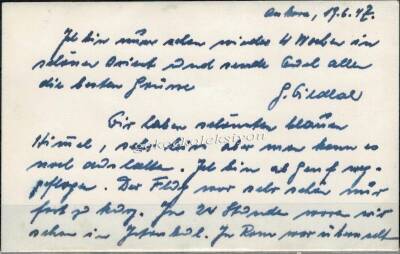 Ankara, 19.6.47.
Ich bin nun schon wieder 4 Wochen im
schönen Orient und sende Euch allen
die besten Grüsse
G.
Wir haben schönsten blauen
Himmel, sehr aber man kann es
noch aushalten. Ich bin ab Genf weg-
geflogen. Der Flug war sehr schön nur
fast zu kurz. In 24 Stunden waren wir
schon in Istanbul. In Rom war